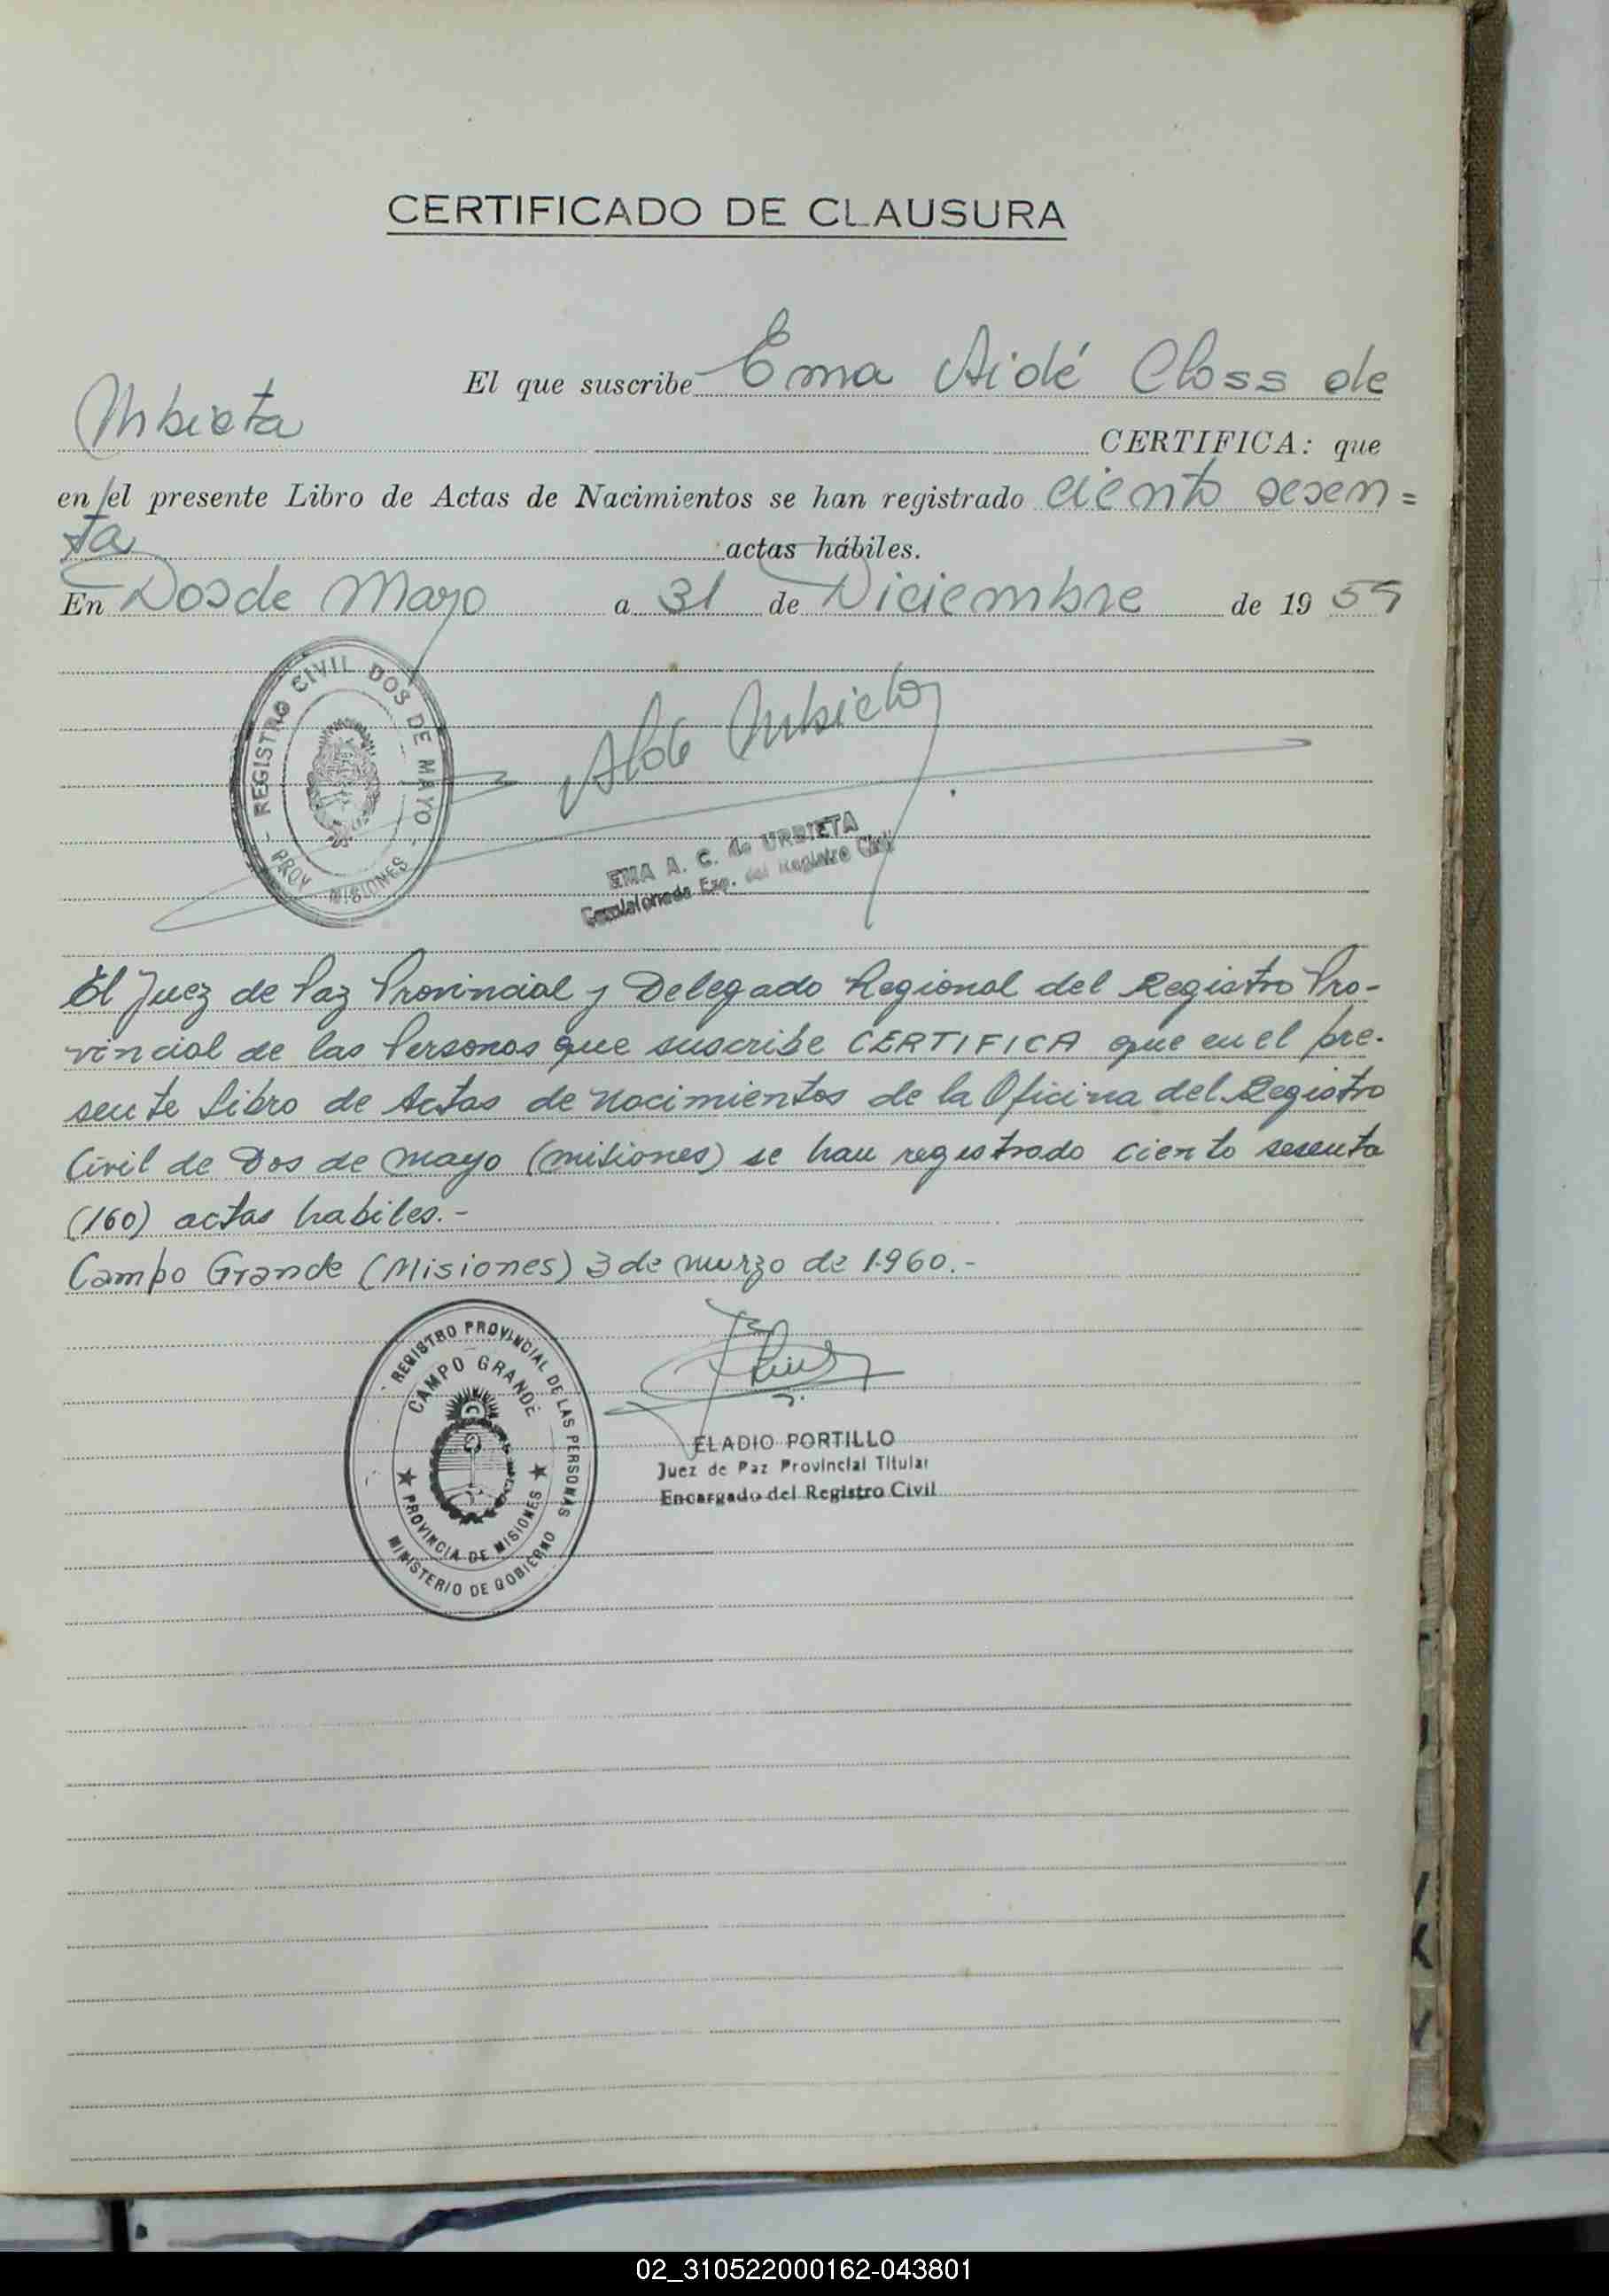 CERTIFICADO DE CLAUSURA
El que suscribe Ema Aidé Closs de
Urbieta CERTIFICA: que
en el presente Libro de Actas de Nacimientos se han registrado ciento sesen=
ta actas hábiles.
En Dos de Mayo a 31 de Diciembre de 19 59
REGISTRO CIVIL DOS DE MAYO
PROV. MISIONES
Urbieta
EMA A. C. de URBIETA
Esp. del Registro Civil
El Juez de Paz Provincial y Delegado Regional del Registro Pro-
vincial de las Personas que suscribe CERTIFICA que en el pre-
sente Libro de Actas de Nacimientos de la Oficina del Registro
Civil de Dos de Mayo (misiones) se han registrado ciento sesenta
(160) actas habiles.-
Campo Grande (Misiones) 3 de marzo de 1.960.-
REGISTRO PROVINCIAL DE LAS PERSONAS
CAMPO GRANDE
PROVINCIA DE MISIONES
MINISTERIO DE GOBIERNO
ELADIO PORTILLO
Juez de Paz Provincial Titular
Encargado del Registro Civil
02_310522000162-043801